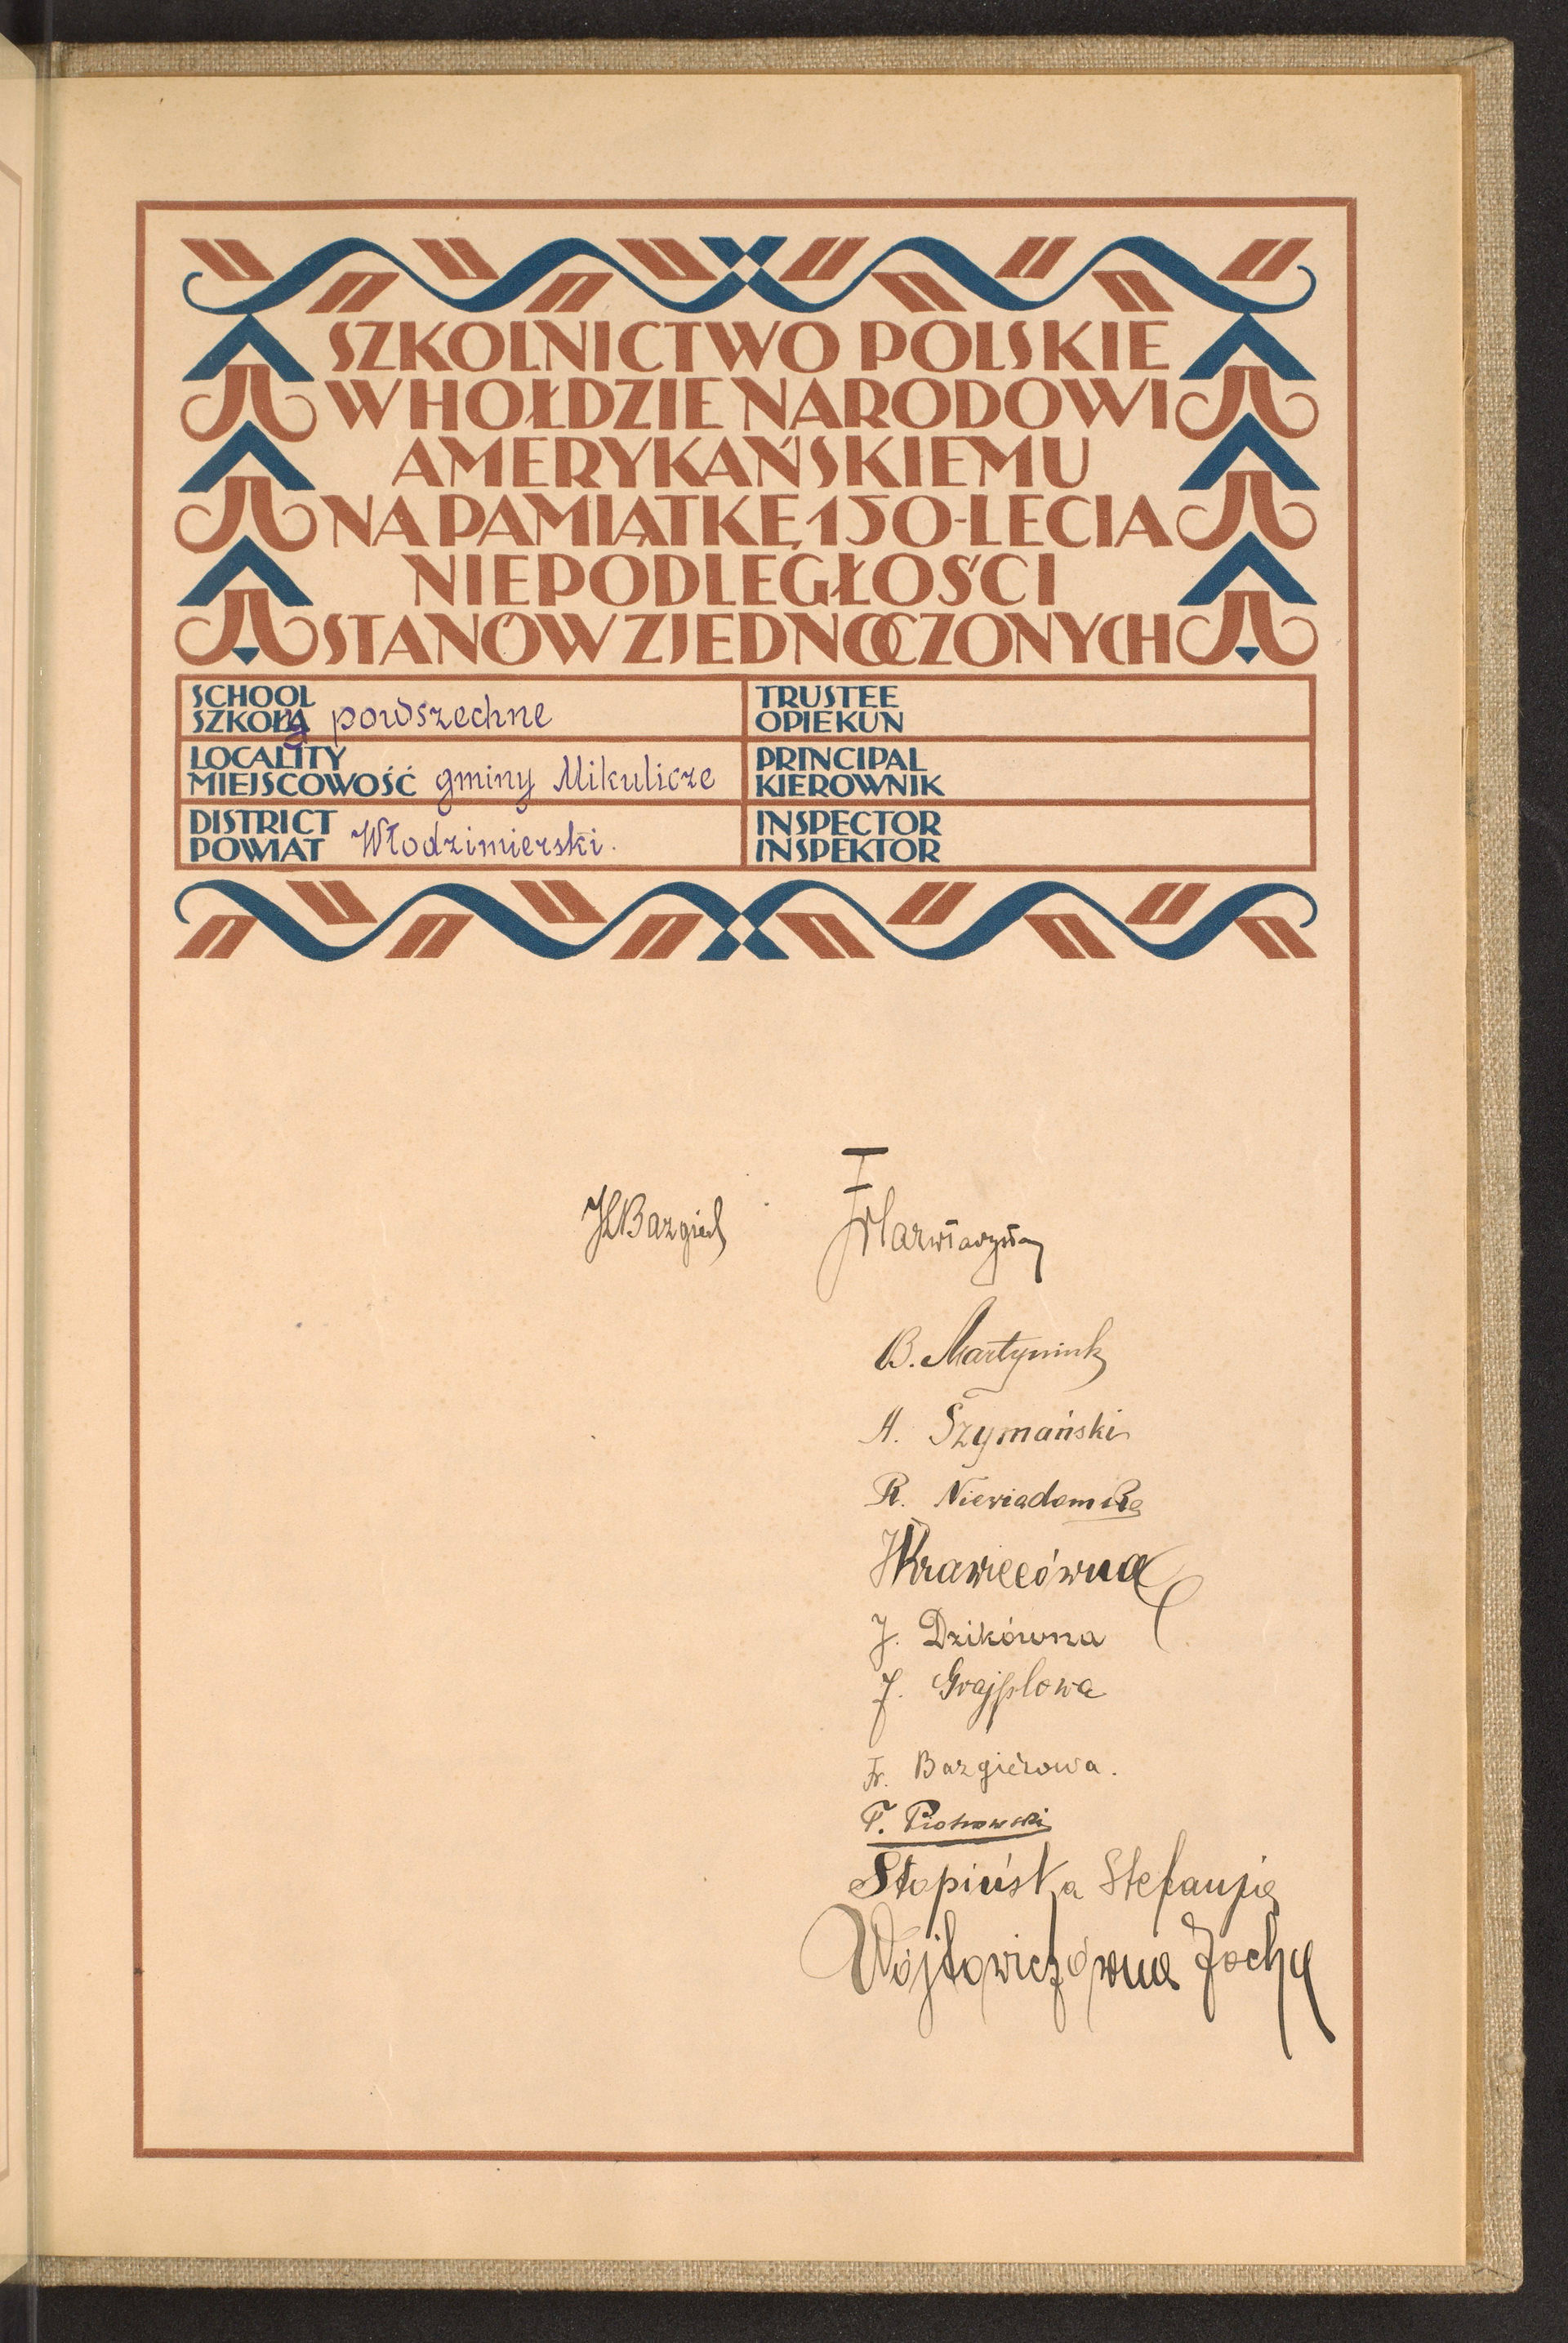 SZKOLNICTWO POLSKIE
W HOŁDZIE NARODOWI
AMERYKAŃSKIEMU
NA PAMIĄTKĘ 150-LECIA
NIEPODLEGŁOŚCI
STANÓW ZJEDNOCZONYCH
SCHOOL
SZKOŁy powszechne
TRUSTEE
OPIEKUN
LOCALITY
MIEJSCOWOŚĆ gminy Mikulicze
PRINCIPAL
KIEROWNIK
DISTRICT
POWIAT Włodzimierski.
INSPECTOR
INSPEKTOR
I
Bazgier
B. Martyniuk
A. Szymański
R. Niewiadomska
Krawiecówna
J. Dzikówna
J. Grajplowa
Fr. Bazgierowa.
P. Piotrowski
Stopińska Stefanja
Wójtowiczówna Zochy